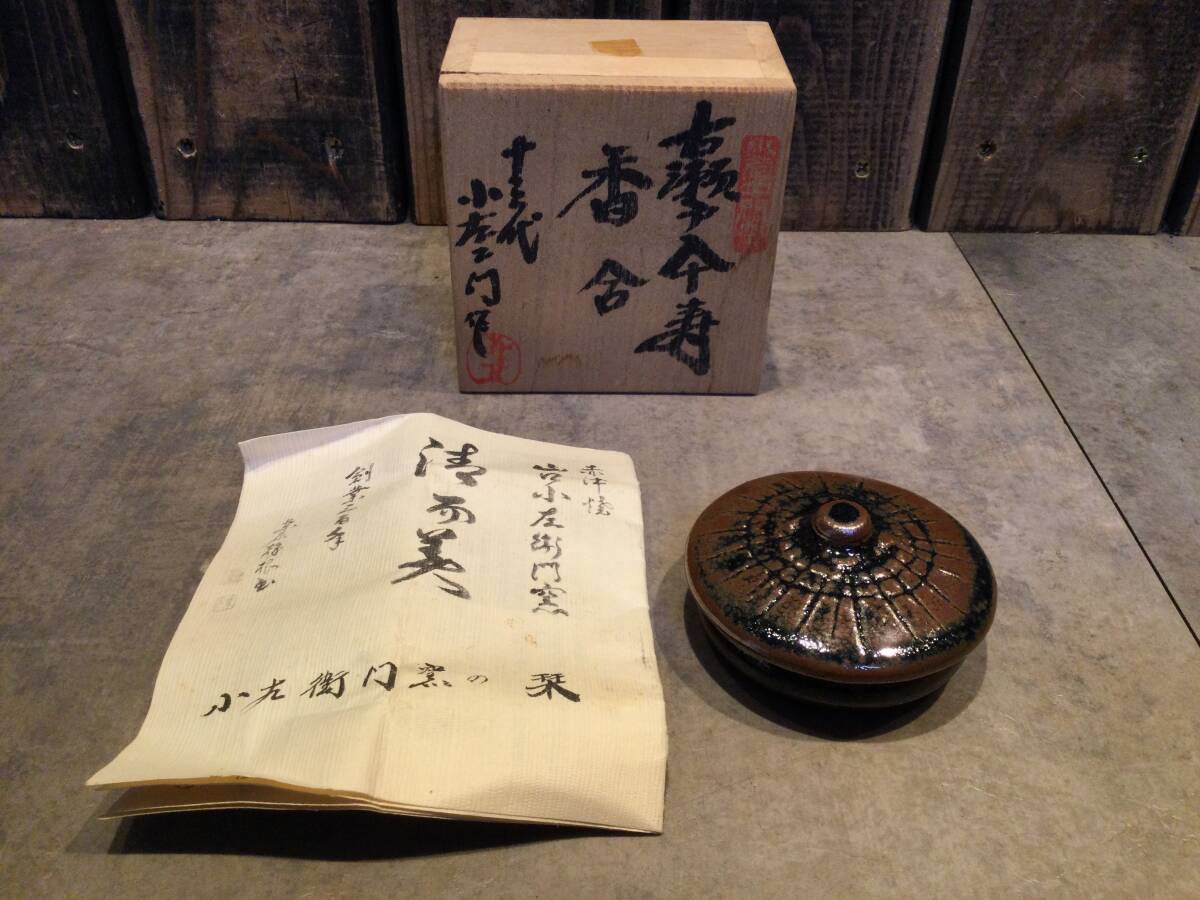 古瀬戸傘寿
香合
十三代
小左エ門作
赤津焼
小左衛門窯
清而美
創業三百年
小左衛門窯の栞